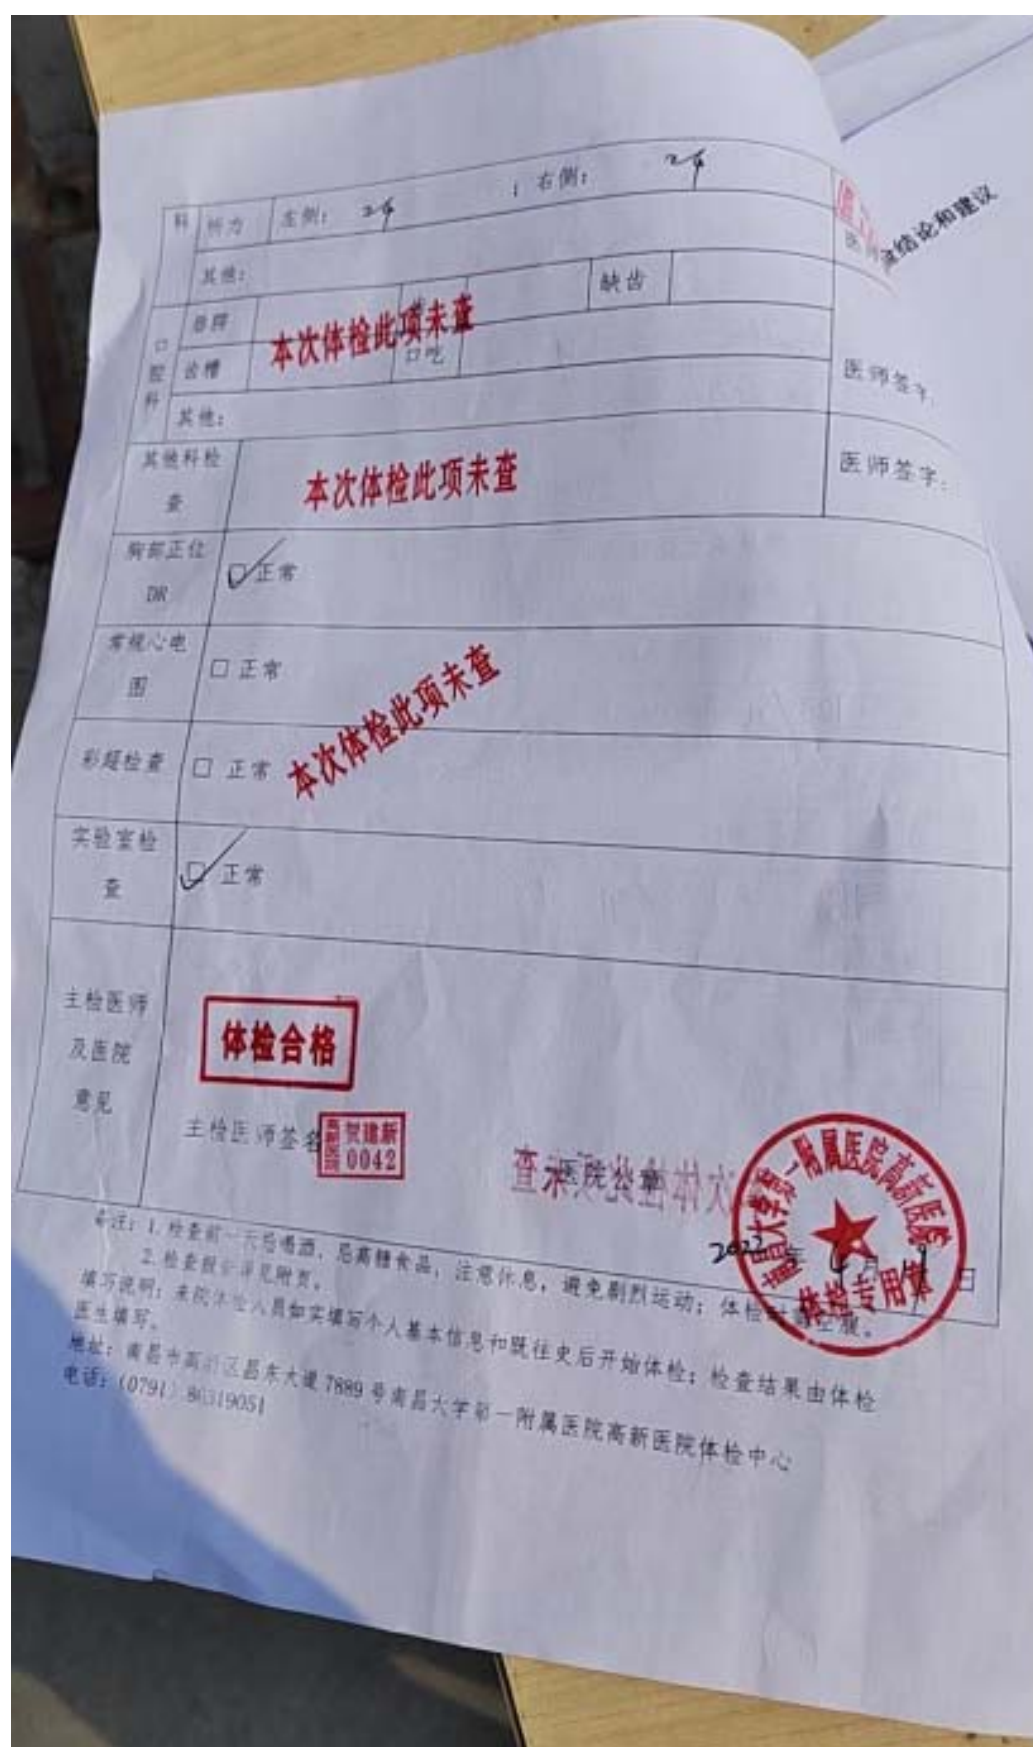 科 听力 左侧： ；右侧：
其他：
结论和建议
口腔科 唇腭 缺齿
本次体检此项未查
齿槽 口吃
医师签字
其他：
其他科检查 本次体检此项未查 医师签字：
胸部正位DR □正常
常规心电图 □正常
本次体检此项未查
彩超检查 □正常
实验室检查 □正常
主检医师及医院意见
体检合格
主检医师签名
高新医院 贺建新 0042
医院公章
南昌大学第一附属医院高新医院
体检专用章
2022年4月19日
备注：1.检查前一天忌喝酒，忌高糖食品，注意休息，避免剧烈运动；体检
2.检查报告详见附页。
填写说明：来院体检人员如实填写个人基本信息和既往史后开始体检；检查结果由体检
医生填写。
地址：南昌市高新区昌东大道7889号南昌大学第一附属医院高新医院体检中心
电话：(0791) 86319051